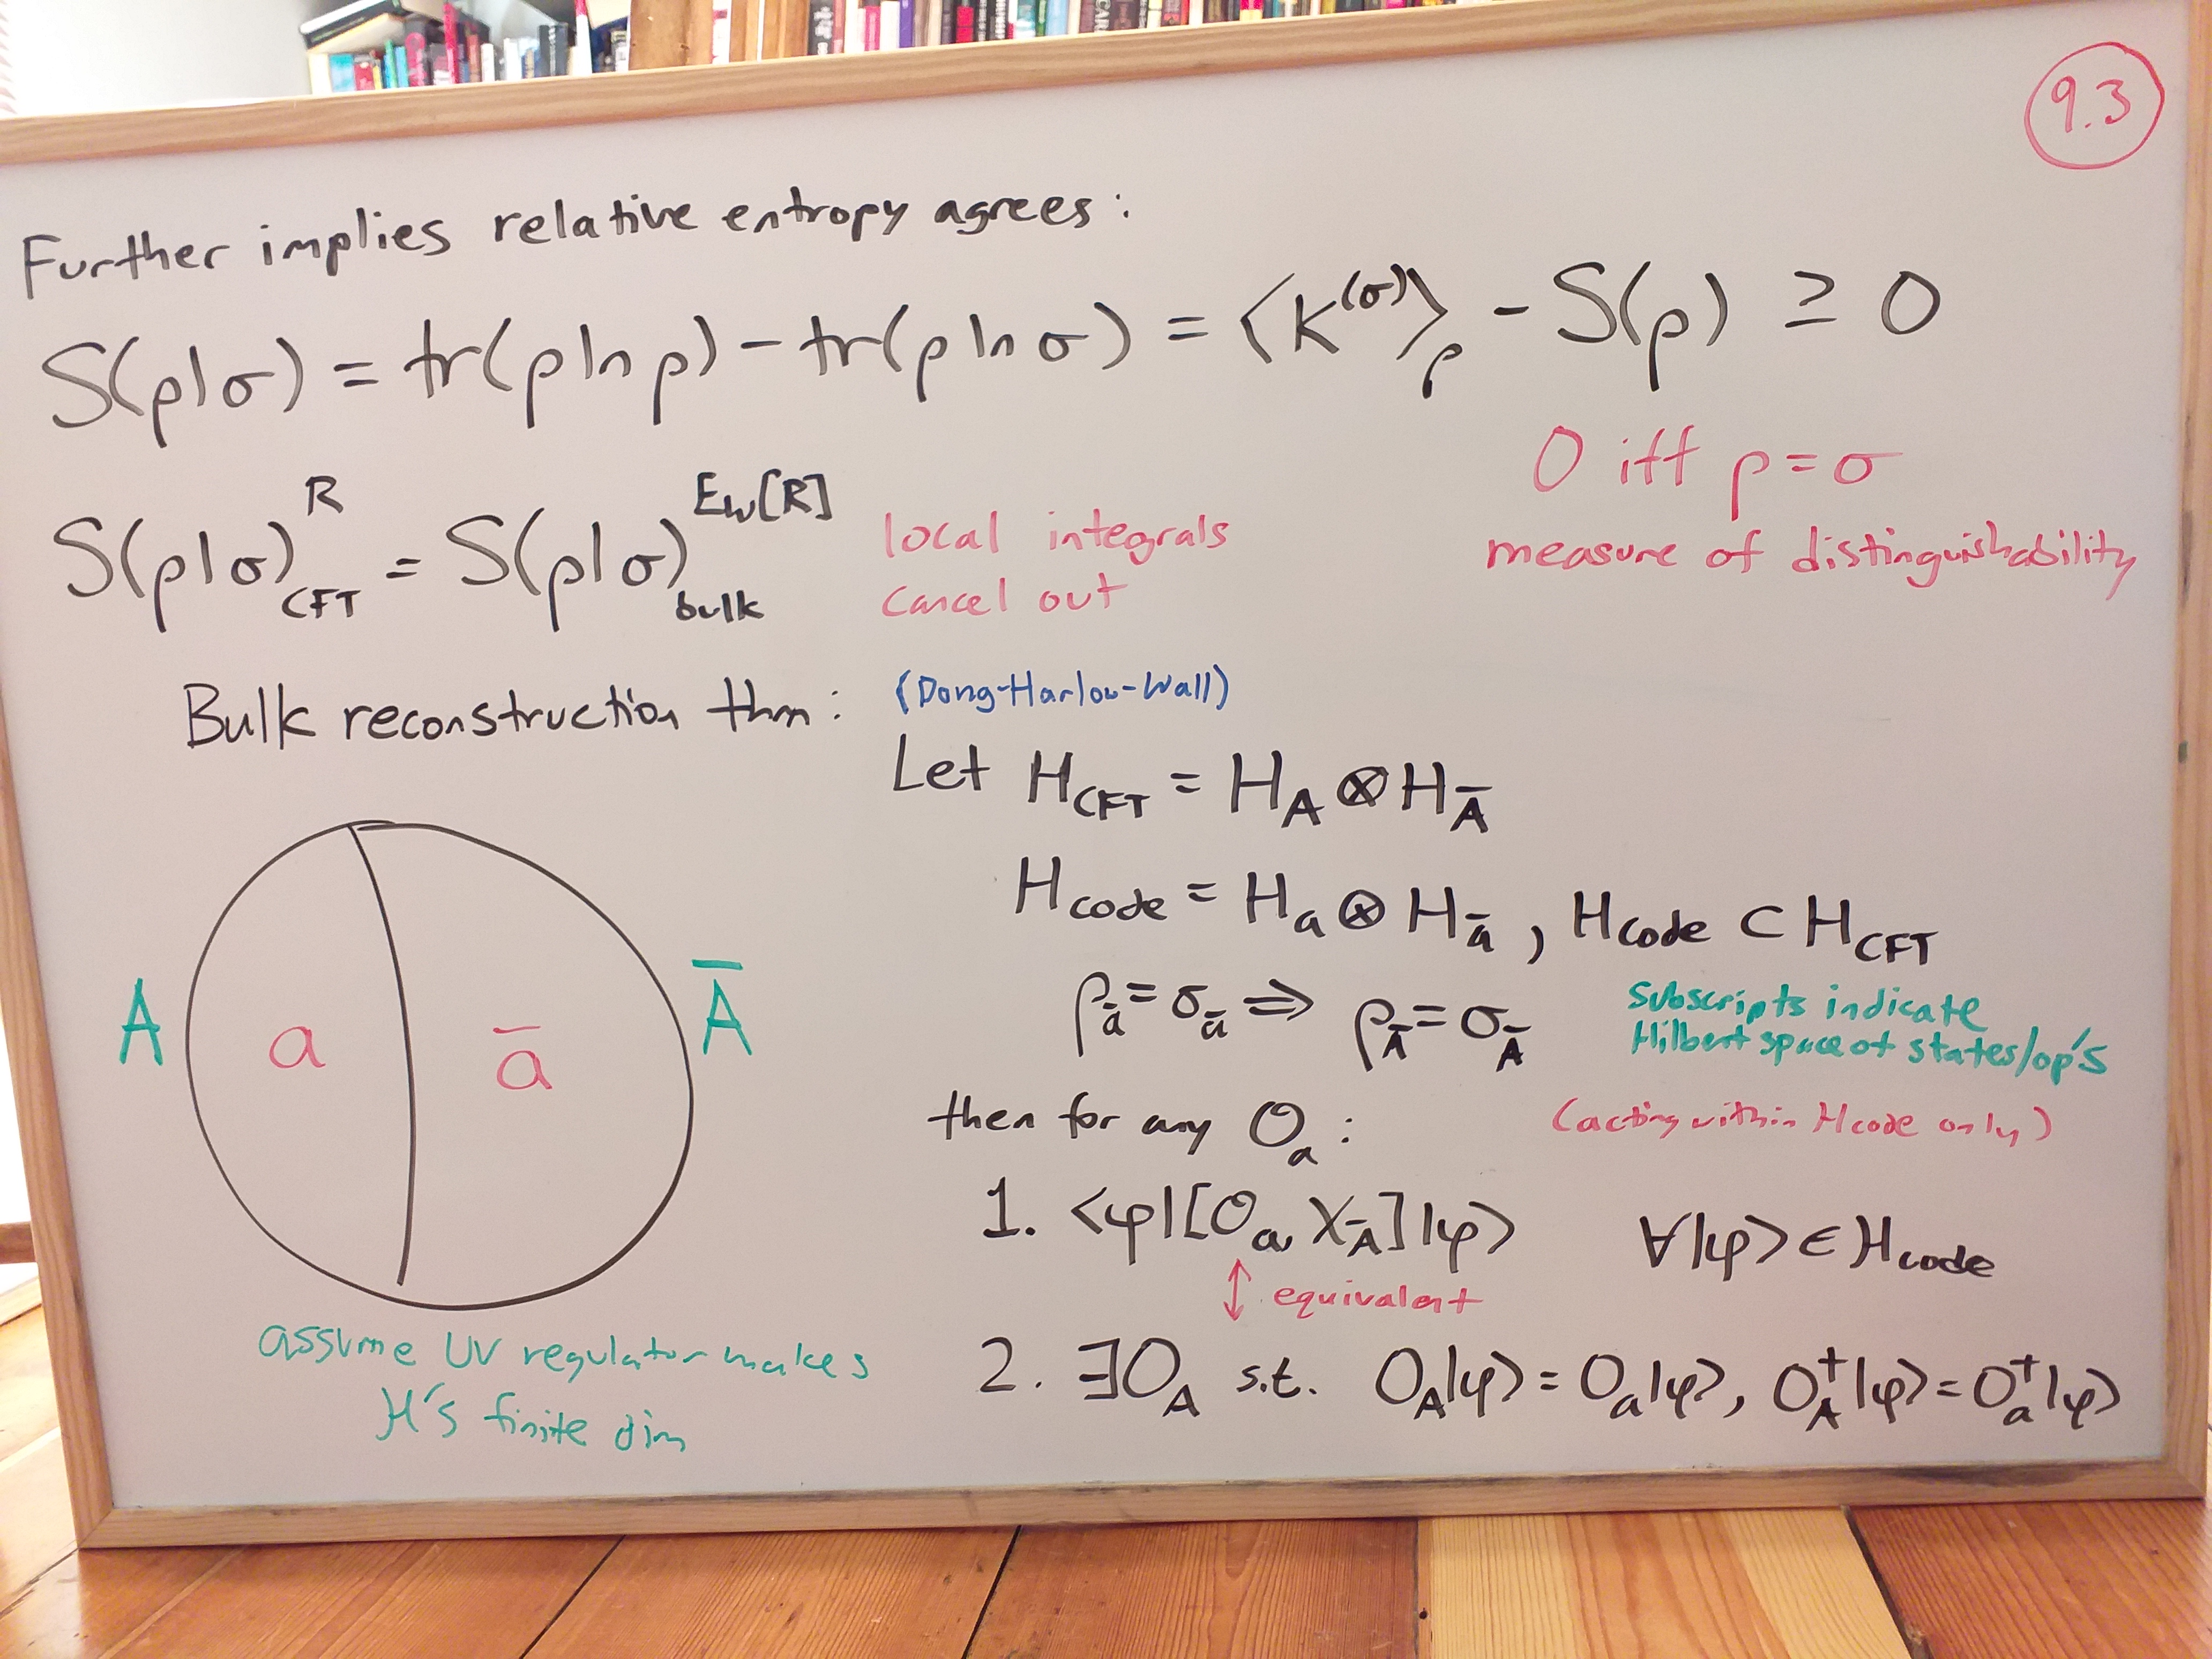 9.3
Further implies relative entropy agrees:
S(ρ|σ) = tr(ρ ln ρ) - tr(ρ ln σ) = ⟨K^(σ)⟩_ρ - S(ρ) ≥ 0
0 iff ρ=σ
measure of distinguishability
S(ρ|σ)^R_CFT = S(ρ|σ)^EW[R]_bulk
local integrals
cancel out
Bulk reconstruction thm: (Dong-Harlow-Wall)
Let H_CFT = H_A ⊗ H_Ā
H_code = H_a ⊗ H_ā, H_code ⊂ H_CFT
ρ_ā = σ_ā ⇒ ρ_Ā = σ_Ā
Subscripts indicate
Hilbert space of states/op's
then for any O_a:
(acting within H_code only)
1. <φ|[O_a, X_Ā]|φ> ∀|φ> ∈ H_code
↕ equivalent
2. ∃O_A s.t. O_A|φ> = O_a|φ>, O_A^†|φ> = O_a^†|φ>
A a ā Ā
assume UV regulator makes
H's finite dim